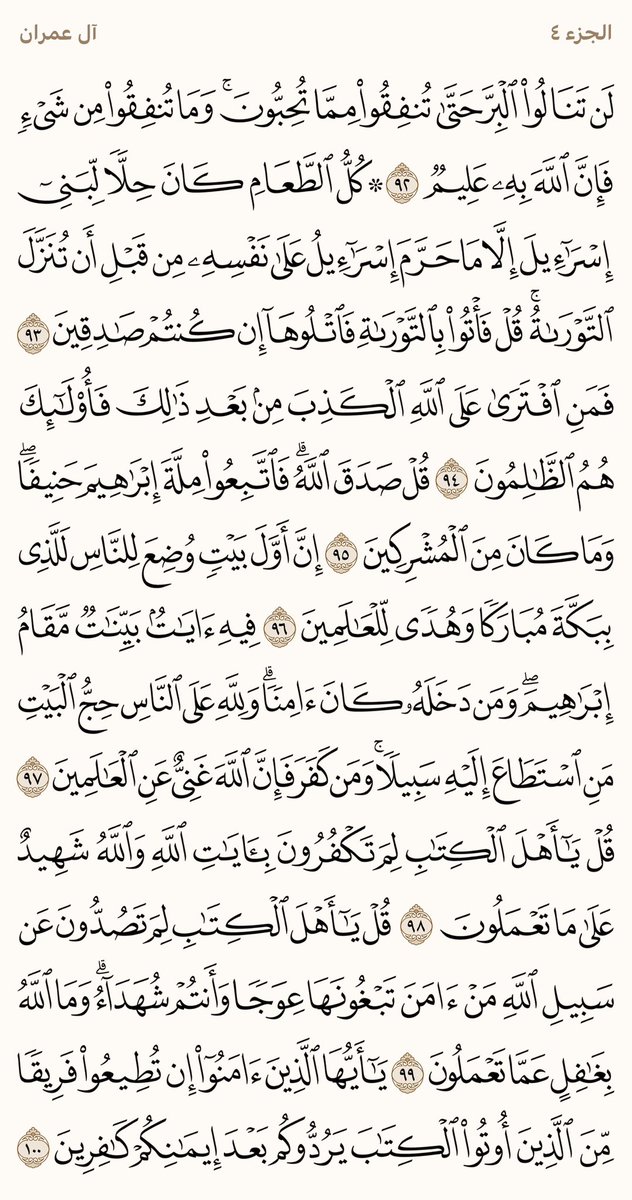 الجزء ٤
آل عمران
لَن تَنَالُوا۟ ٱلْبِرَّ حَتَّىٰ تُنفِقُوا۟ مِمَّا تُحِبُّونَ ۚ وَمَا تُنفِقُوا۟ مِن شَىْءٍ
فَإِنَّ ٱللَّهَ بِهِۦ عَلِيمٌ ٩٢ ۞ كُلُّ ٱلطَّعَامِ كَانَ حِلًّا لِّبَنِىٓ
إِسْرَٰٓءِيلَ إِلَّا مَا حَرَّمَ إِسْرَٰٓءِيلُ عَلَىٰ نَفْسِهِۦ مِن قَبْلِ أَن تُنَزَّلَ
ٱلتَّوْرَىٰةُ ۗ قُلْ فَأْتُوا۟ بِٱلتَّوْرَىٰةِ فَٱتْلُوهَآ إِن كُنتُمْ صَٰدِقِينَ ٩٣
فَمَنِ ٱفْتَرَىٰ عَلَى ٱللَّهِ ٱلْكَذِبَ مِنۢ بَعْدِ ذَٰلِكَ فَأُو۟لَٰٓئِكَ
هُمُ ٱلظَّٰلِمُونَ ٩٤ قُلْ صَدَقَ ٱللَّهُ ۗ فَٱتَّبِعُوا۟ مِلَّةَ إِبْرَٰهِيمَ حَنِيفًا ۖ
وَمَا كَانَ مِنَ ٱلْمُشْرِكِينَ ٩٥ إِنَّ أَوَّلَ بَيْتٍ وُضِعَ لِلنَّاسِ لَلَّذِى
بِبَكَّةَ مُبَارَكًا وَهُدًى لِّلْعَٰلَمِينَ ٩٦ فِيهِ ءَايَٰتٌۢ بَيِّنَٰتٌ مَّقَامُ
إِبْرَٰهِيمَ ۖ وَمَن دَخَلَهُۥ كَانَ ءَامِنًا ۗ وَلِلَّهِ عَلَى ٱلنَّاسِ حِجُّ ٱلْبَيْتِ
مَنِ ٱسْتَطَاعَ إِلَيْهِ سَبِيلًا ۚ وَمَن كَفَرَ فَإِنَّ ٱللَّهَ غَنِىٌّ عَنِ ٱلْعَٰلَمِينَ ٩٧
قُلْ يَٰٓأَهْلَ ٱلْكِتَٰبِ لِمَ تَكْفُرُونَ بِـَٔايَٰتِ ٱللَّهِ وَٱللَّهُ شَهِيدٌ
عَلَىٰ مَا تَعْمَلُونَ ٩٨ قُلْ يَٰٓأَهْلَ ٱلْكِتَٰبِ لِمَ تَصُدُّونَ عَن
سَبِيلِ ٱللَّهِ مَنْ ءَامَنَ تَبْغُونَهَا عِوَجًا وَأَنتُمْ شُهَدَآءُ ۗ وَمَا ٱللَّهُ
بِغَٰفِلٍ عَمَّا تَعْمَلُونَ ٩٩ يَٰٓأَيُّهَا ٱلَّذِينَ ءَامَنُوٓا۟ إِن تُطِيعُوا۟ فَرِيقًا
مِّنَ ٱلَّذِينَ أُوتُوا۟ ٱلْكِتَٰبَ يَرُدُّوكُم بَعْدَ إِيمَٰنِكُمْ كَٰفِرِينَ ١٠٠